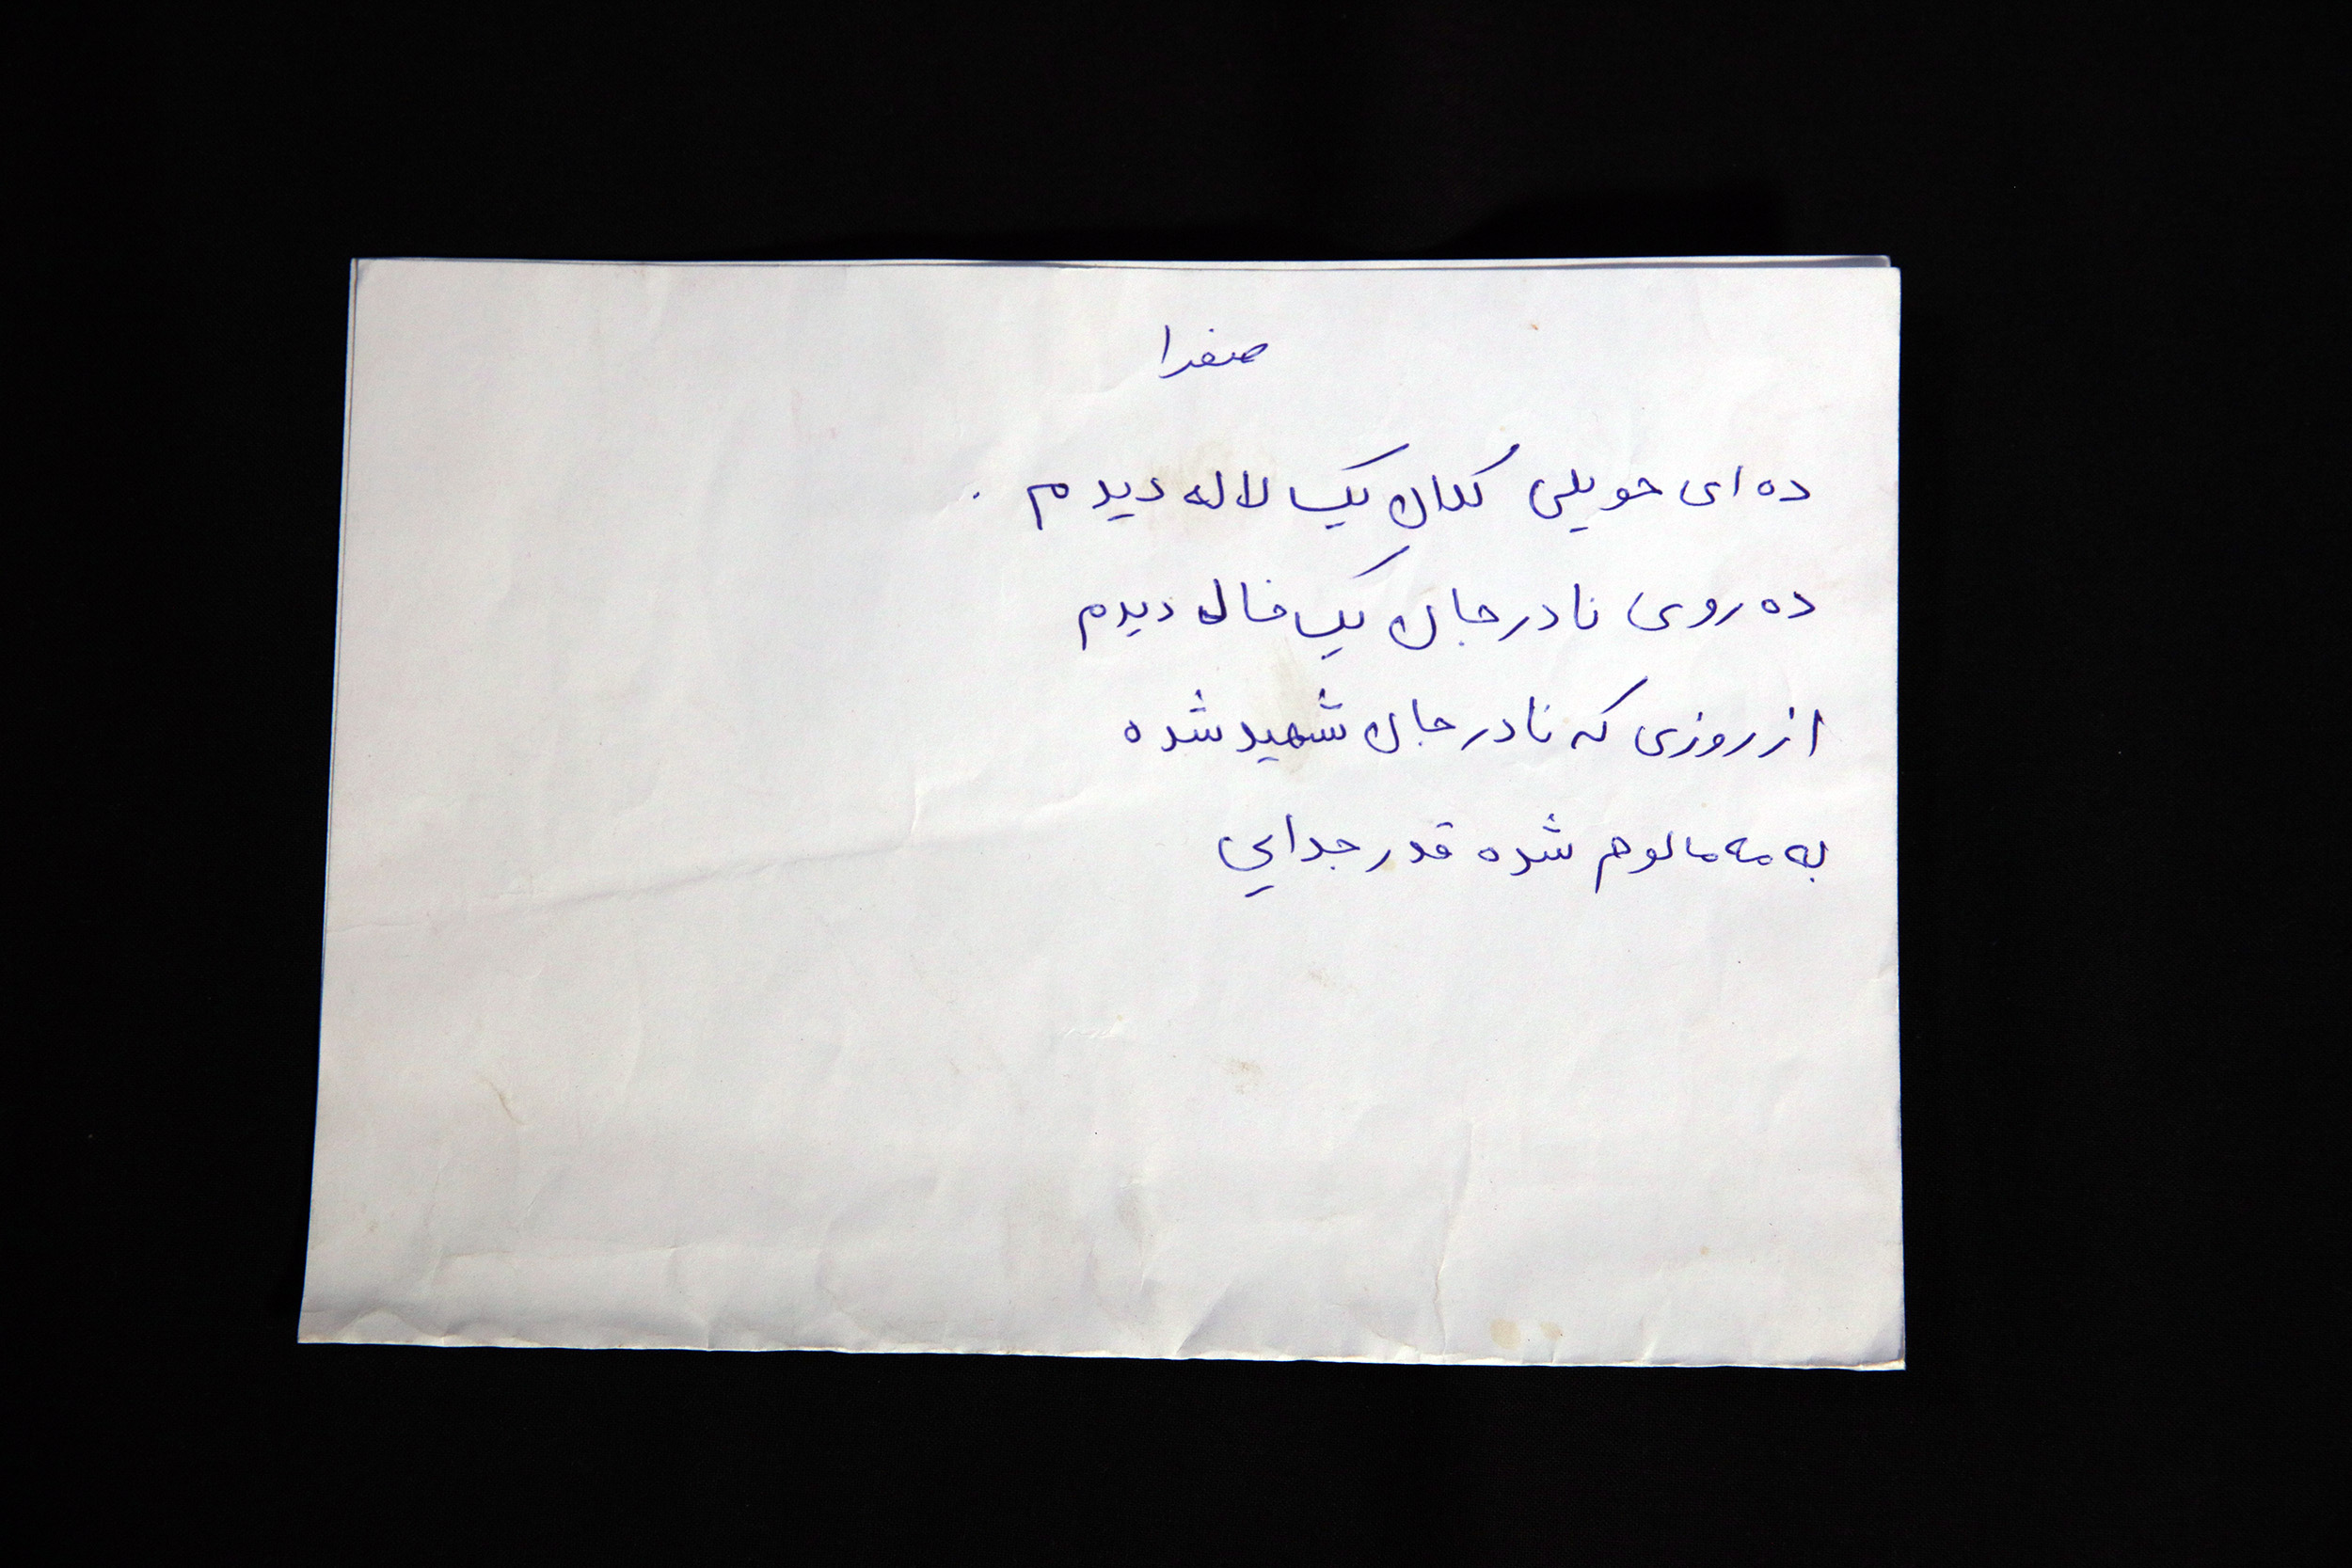 صغرا
ده ای حویلی کلان یک لاله دیدم .
ده روی نادر جان یک خال دیدم
از روزی که نادر جان شهید شده
به مه مالوم شده قدر جدایی